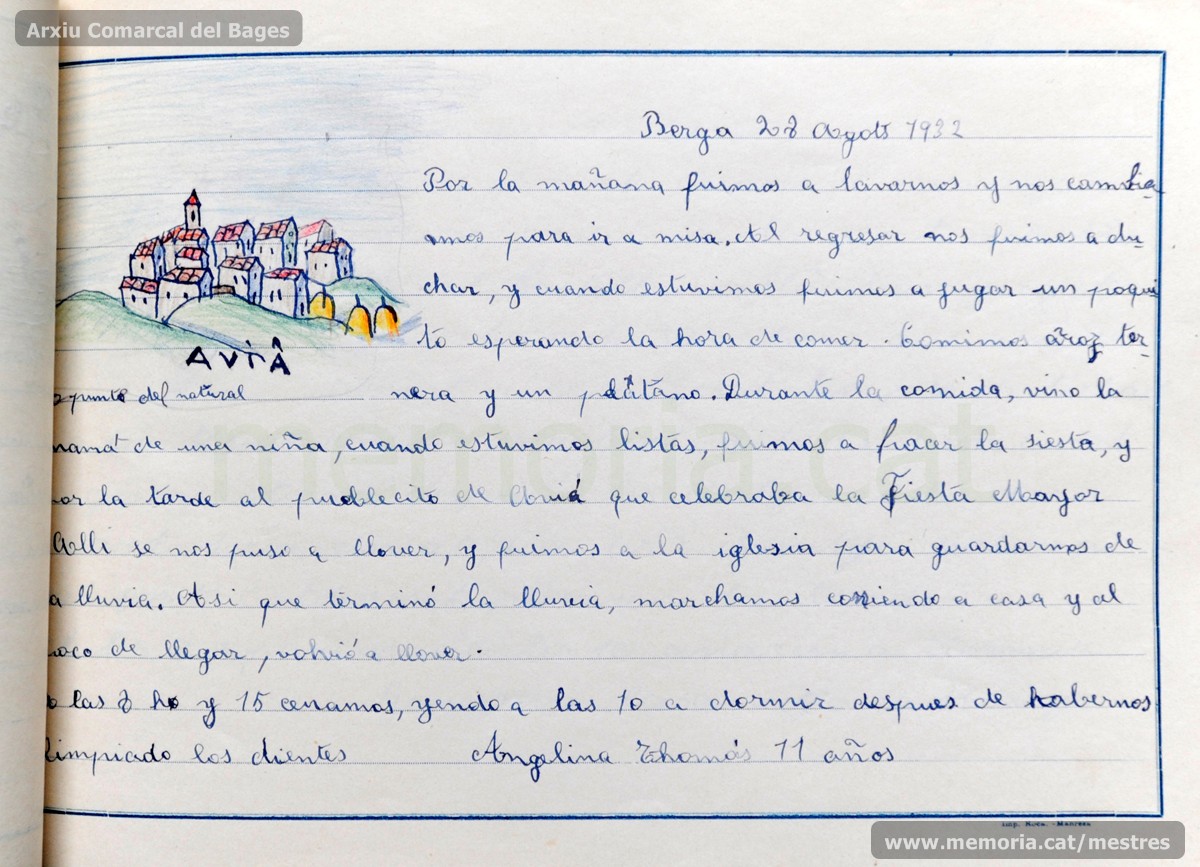 Arxiu Comarcal del Bages
Berga 28 Agost 1932
Por la mañana fuimos a lavarnos y nos cambia
amos para ir a misa. Al regresar nos fuimos a du-
char, y cuando estuvimos fuimos a jugar un poqui
to esperando la hora de comer. Comimos aroz ter-
AVIÀ
apunte del natural
nera y un plátano. Durante la comida, vino la
mamá de una niña, cuando estuvimos listas, fuimos a hacer la siesta, y
por la tarde al pueblecito de Aviá que celebraba la Fiesta Mayor
Alli se nos puso a llover, y fuimos a la iglesia para guardarnos de
a lluvia. Asi que terminó la lluvia, marchamos corriendo a casa y al
poco de llegar, volvió a llover.
las 8 h y 15 cenamos, yendo a las 10 a dormir despues de habernos
limpiado los dientes Angelina Thomás 11 años
memoria.cat
Imp. Roca. - Manresa
www.memoria.cat/mestres